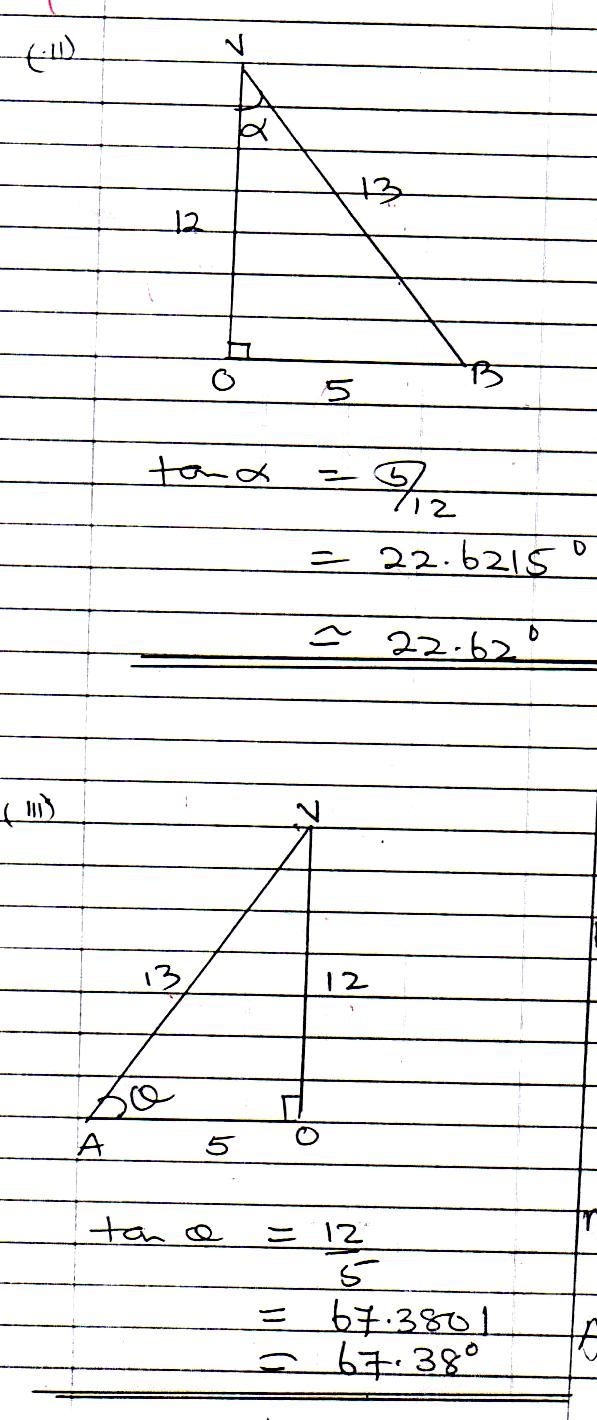 (ii)
V
α
12
13
O
5
B
tan α = 5/12
= 22.6215°
≃ 22.62°
(iii)
V
13
12
θ
A
5
O
tan θ = 12/5
= 67.3801
= 67.38°